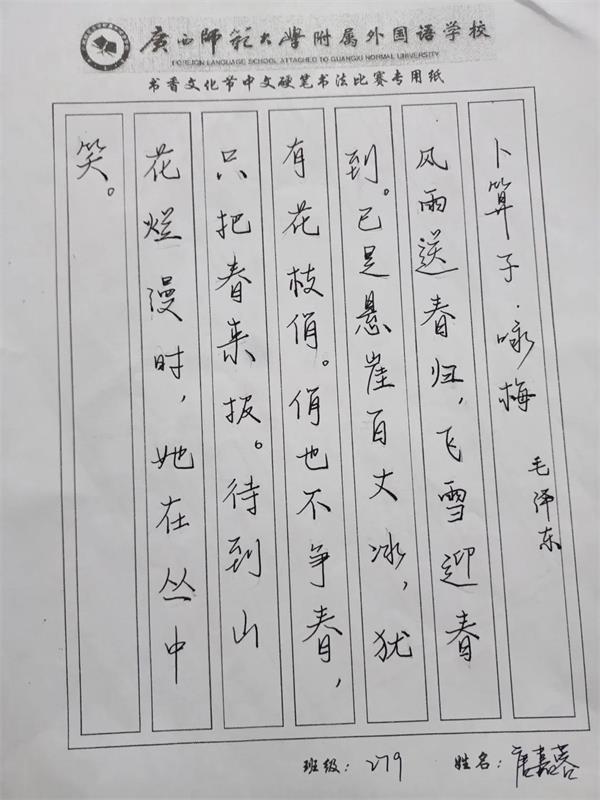 广西师范大学附属外国语学校
FOREIGN LANGUAGE SCHOOL ATTACHED TO GUANGXI NORMAL UNIVERSITY
书香文化节中文硬笔书法比赛专用纸
卜算子·咏梅
毛泽东
风雨送春归，飞雪迎春
到。已是悬崖百丈冰，犹
有花枝俏。俏也不争春，
只把春来报。待到山
花烂漫时，她在丛中
笑。
班级：279
姓名：唐嘉蓉